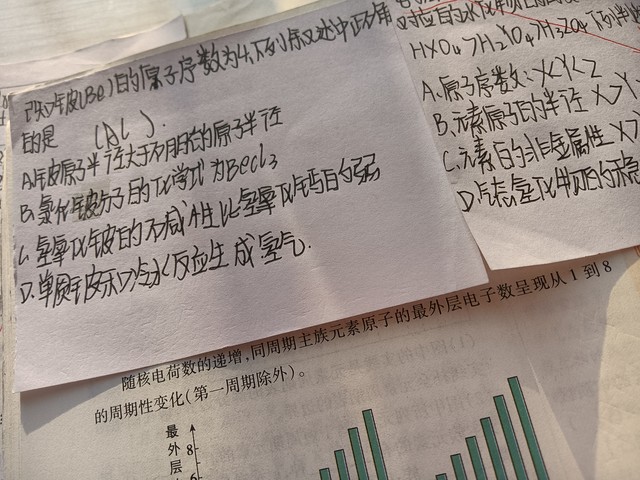 已知铍(Be)的原子序数为4,下列叙述中正确
的是 (AC).
A.铍原子半径大于硼的原子半径
B.氯化铍分子的化学式为BeCl3
C.氢氧化铍的碱性比氢氧化钙的弱
D.单质铍可与冷水反应生成氢气.
HXO4>H2YO4>H3ZO4
A.原子序数:X<Y<Z
B.元素原子的半径 X>Y
C.元素的非金属性 X>
D.气态氢化物的稳
随核电荷数的递增,同周期主族元素原子的最外层电子数呈现从1到8
的周期性变化(第一周期除外)。
最
外
层
8